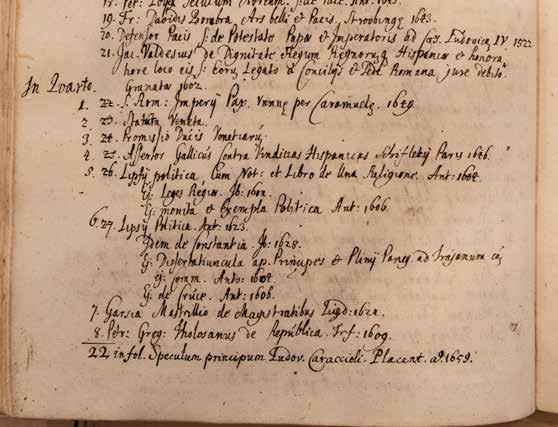 19. Fr: Davidis Zombra, Ars belli et Pacis, Straubingę 1643.
20. Defensor Pacis s: de Potestate Papæ et Imperatoris ad Cæs. Ludovicũ IV. 1522
21. Jac. Valdesius de Dignitate Regum Regnorũq Hispaniæ et honora,
tiore loco eis s: Eorũ Legatis à Concilijs et Sede Romana, jure debito.
Granatæ 1602.
In Quarto.
1. 22. S. Rom: Imperij Pax. Vienne per Caramuelẽ. 1649.
2 23. Statuta Veneta.
3 24. Promissio Ducis Venetiarũ
4. 25. Assertor Gallicus Contra Vindicias Hispanicas Chifletij Paris 1646.
5. 26. Lipsij politica Cum Not: et Libro de Una Religione. Ant: 1604.
Ej: Leges Regiæ. Ib: 1601.
Ej: monita et Exempla Politica Ant: 1606.
6. 27. Lipsij Politica. Ant: 1623.
Idem de Constantia. Ib: 1628.
Ej: Dissertatiuncula ap. Principes et Plinij Paneg. ad Trajanum cũ
ej: Comm. Antv: 1604.
Ej: de Cruce. Ant: 1606.
7. Garsia Mastrillio de Magistratibus Lugd: 1621.
8. Petr: Greg: Tholosanus de Republica. Frf: 1609.
22 in fol. Speculum principum Ludov. Caraccioli. Placent. aº. 1659.